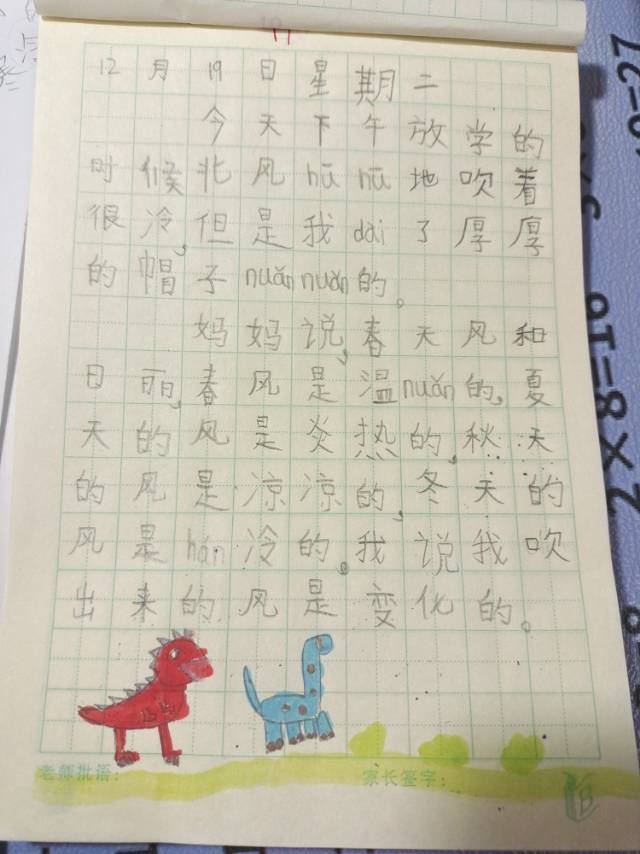 12月19日星期二
今天下午放学的
时候北风hūhū地吹着
很冷,但是我dài了厚厚
的帽子nuǎnnuǎn的。
妈妈说,春天风和
日丽,春风是温nuǎn的,夏
天的风是炎热的,秋天
的风是凉凉的,冬天的
风是hán冷的。我说我吹
出来的风是变化的。
老师批语: 家长签字: